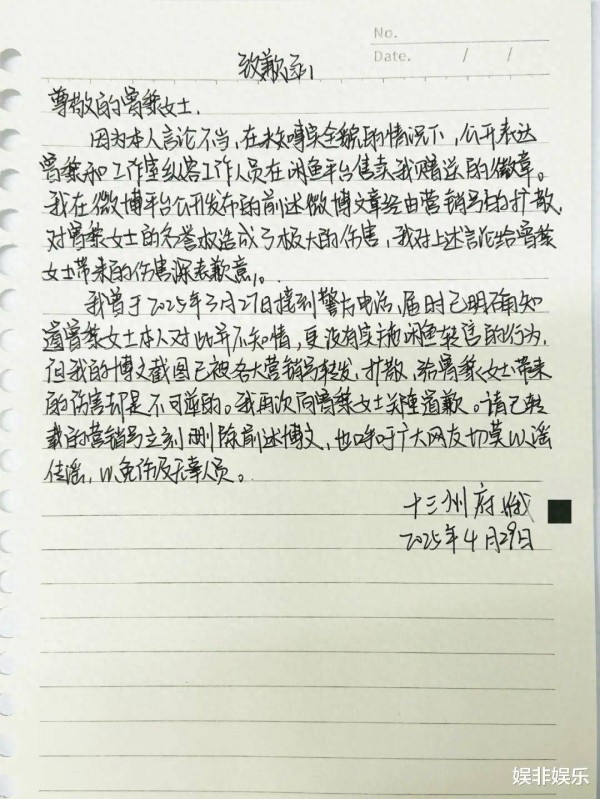 No.
Date. / /
致歉函
尊敬的曾黎女士.
因为本人言论不当，在未知晓完全貌的情况下，公开表达
曾黎和工作室纵容工作人员在闲鱼平台售卖我赠送的徽章。
我在微博平台公开发布的前述微博文章经由营销号的扩散，
对曾黎女士的名誉权造成了极大的伤害，我对上述言论给曾黎
女士带来的伤害深表歉意。
我曾于2025年3月27日接到警方电话，届时已明确知
道曾黎女士本人对此并不知情，更没有实施闲鱼转售的行为，
但我的博文截图已被各大营销号转发、扩散，给曾黎女士带来
的伤害却是不可逆的。我再次向曾黎女士郑重道歉。请已转
载的营销号立刻删除前述博文，也呼吁广大网友切莫以谣
传谣，以免伤及无辜人员。
十三州府
2025年4月29日
娱非娱乐